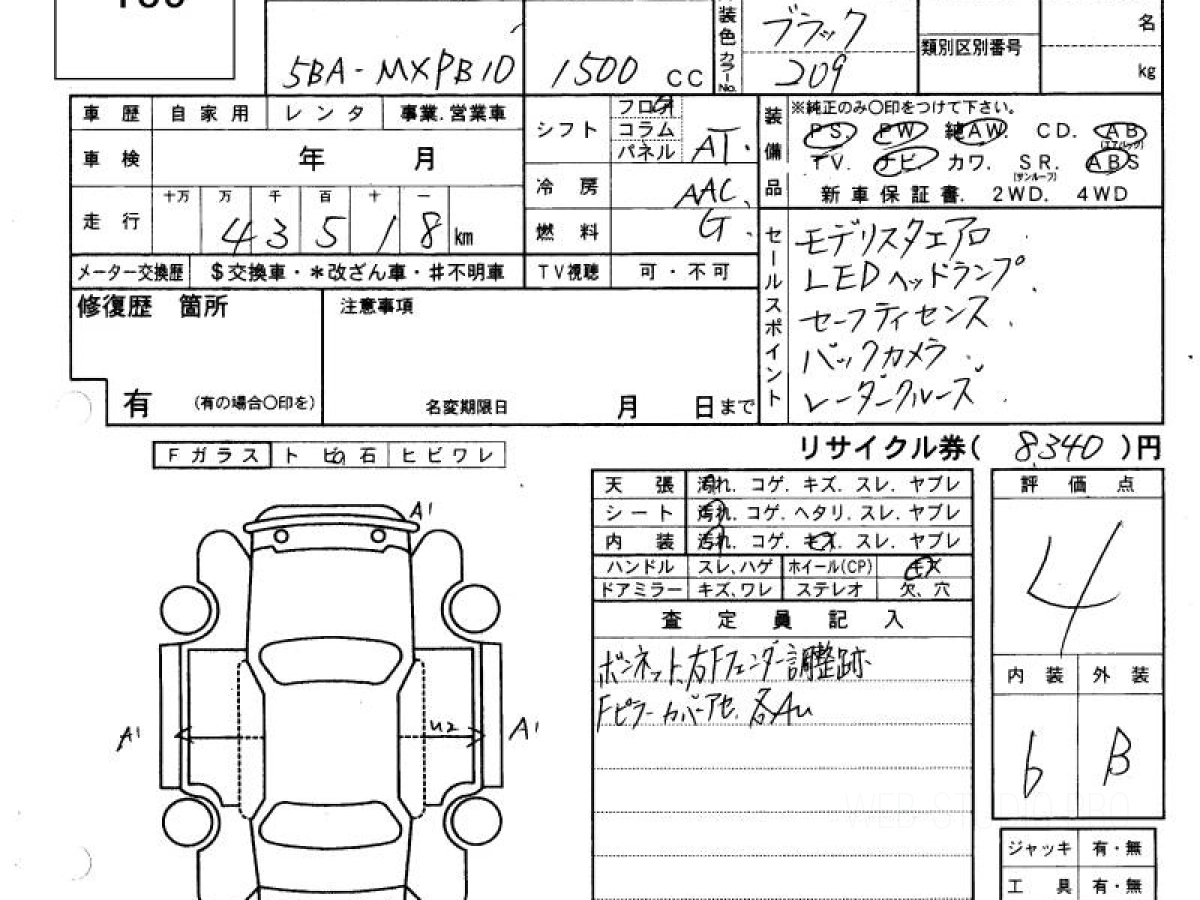 装色 カラーNo. ブラック 209
名
類別区別番号
5BA-MXPB10 1500 CC
kg
車歴 自家用 レンタ 事業.営業車
シフト フロア コラム パネル AT
装備品 ※純正のみ〇印をつけて下さい。
PS. PW 純AW. CD. AB (エアバック)
TV. ナビ. カワ. SR. (サンルーフ) ABS
新車保証書. 2WD. 4WD
車検 年 月
冷房 AAC
走行 十万 万 千 百 十 一
43518 km
燃料 G
メーター交換歴 $交換車・*改ざん車・#不明車
TV視聴 可・不可
セールスポイント
モデリスタエアロ
LEDヘッドランプ
セーフティセンス
バックカメラ
レーダークルーズ
修復歴 箇所
注意事項
有 (有の場合〇印を)
名変期限日 月 日まで
リサイクル券( 8,340 )円
Fガラス トビ石 ヒビワレ
天張 汚れ. コゲ. キズ. スレ. ヤブレ
シート 汚れ. コゲ. ヘタリ. スレ. ヤブレ
内装 汚れ. コゲ. キズ. スレ. ヤブレ
ハンドル スレ、ハゲ ホイール(CP) キズ
ドアミラー キズ、ワレ ステレオ 欠、穴
評価点
4
査定員記入
ボンネット、右Fフェンダー調整跡
Fピラーカバーアセ. 各AU
内装 外装
6 B
A1
A1
U2
A1
ジャッキ 有・無
工具 有・無